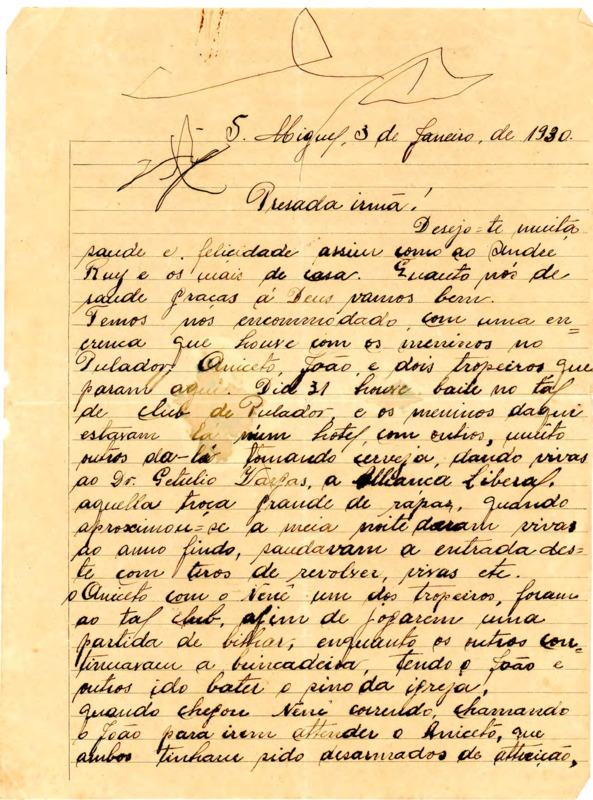 S. Miguel, 3 de Janeiro, de 1930.
Presada irmã!
Desejo=te muita
saude e felicidade assim como ao André
Ruy e os mais de casa. Quanto nós de
saude graças á Deus vamos bem.
Temos nos encommodado, com uma en-
crenca que houve com os meninos no
Pulador. Aniceto, João, e dois tropeiros que
param aqui. Dia 31 houve baile no tal
de club de Pulador, e os meninos daqui
estavam lá num hotel, com outros, muito
outros da-lá tomando cerveja, dando vivas
ao Dr. Getulio Vargas, a Alliança Liberal,
aquella troça grande de rapaz, quando
aproximou=se a meia noite deram vivas
ao anno findo, saudavam a entrada des=
te com tiros de revolver, vivas etc.
o Aniceto com o Nênê um dos tropeiros, foram
ao tal club, afim de jogarem uma
partida de bilhar; enquanto os outros con-
tinuavam a brincadeira, tendo o João e
outros ido bater o sino da igreja,
quando chegou Nênê correndo, chamando
o João para irem attender o Aniceto, que
ambos tinham sido desarmados de atteição,